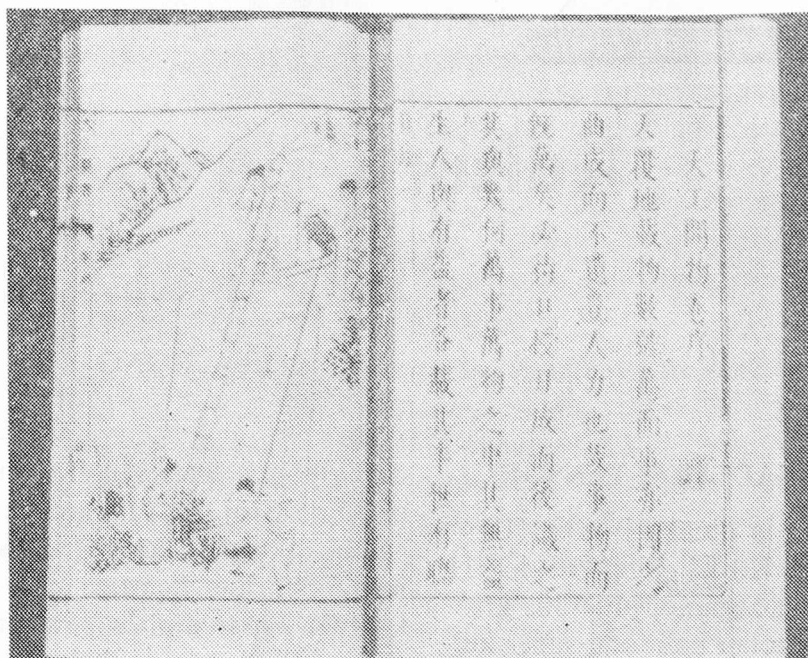 天工開物卷序
天覆地載物數號萬而事亦因之
曲成而不遺豈人力也哉事物而
既萬矣必待口授目成而後識之
其與幾何萬事萬物之中其無益
生人與有益者各載其半世有聰